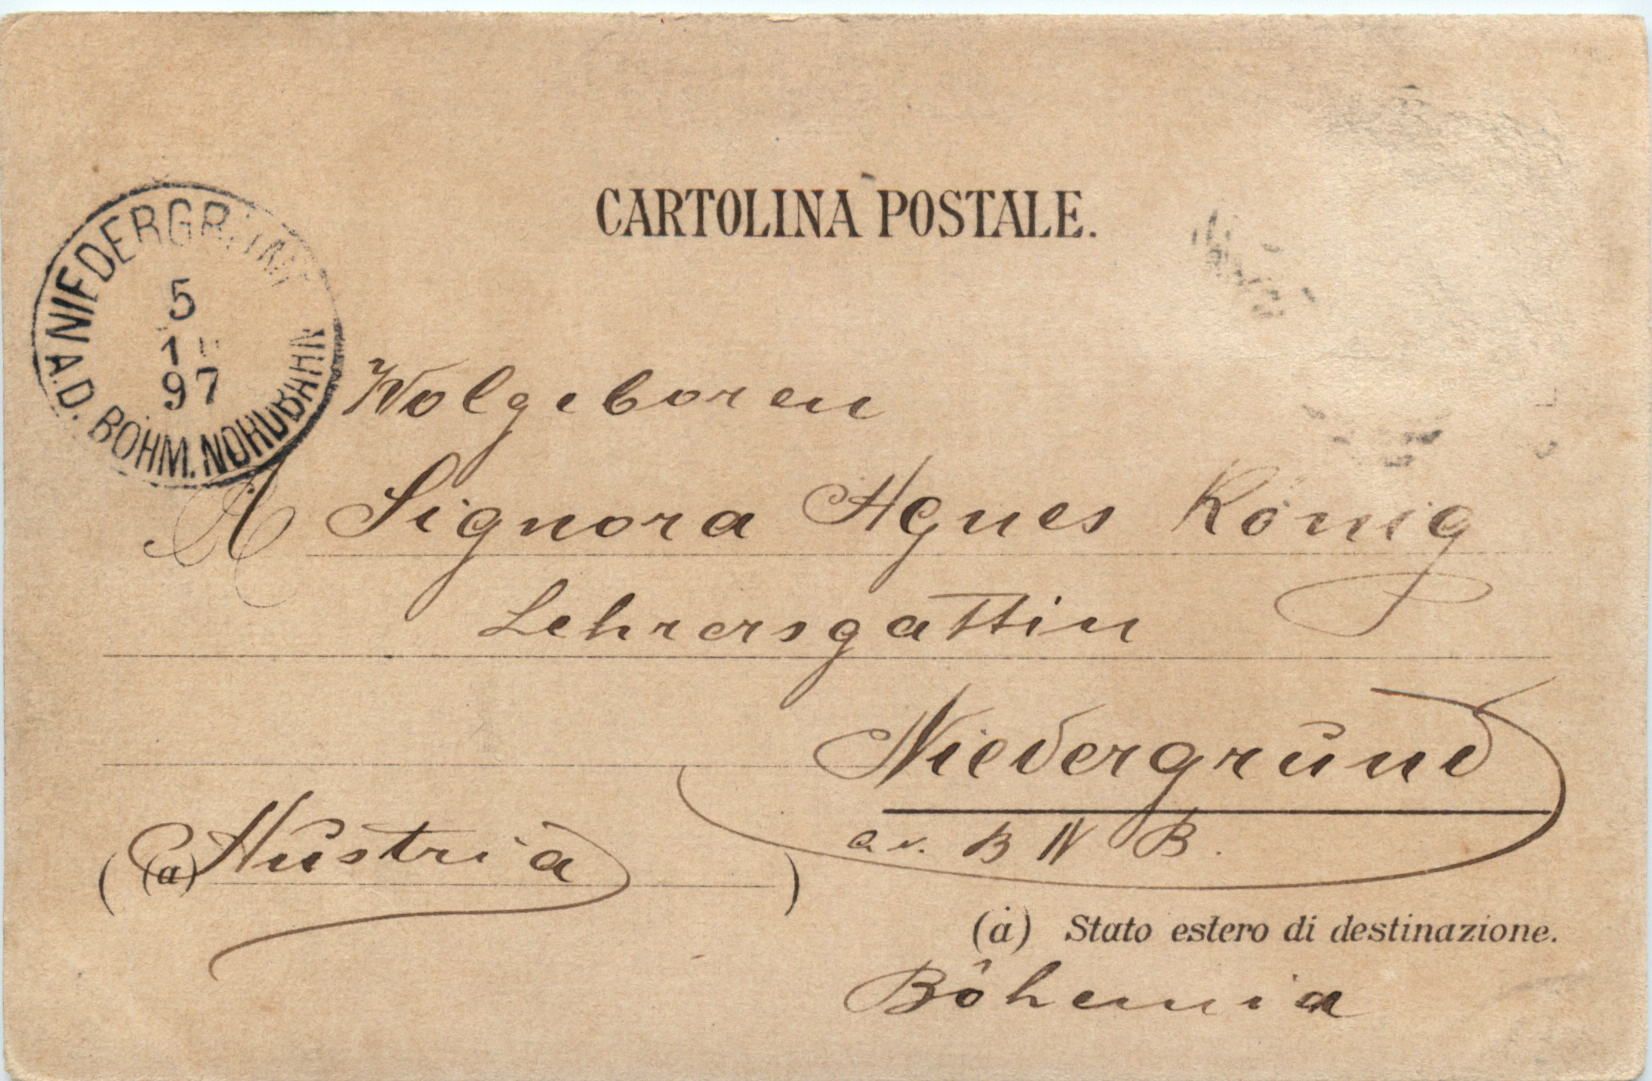 CARTOLINA POSTALE.
NIEDERGRUND
A.D. BÖHM. NORDBAHN
5
97
Wolgeboren
A Signora Agnes König
Lehrersgattin
Niedergrund
a. B N B.
(a) Austria
(a) Stato estero di destinazione.
Böhemia